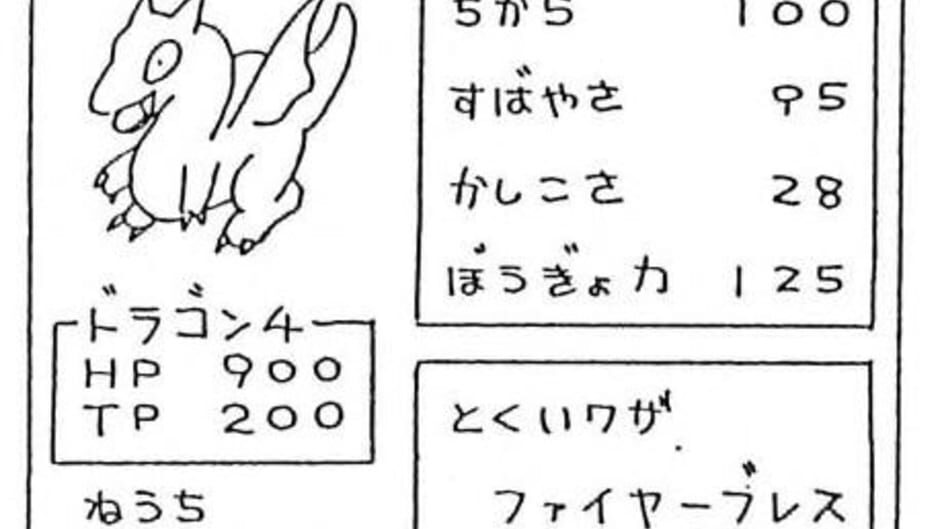 ちから 100
すばやさ 95
かしこさ 28
ぼうぎょ力 125
ドラゴン4
HP 900
TP 200
ねうち
とくいワザ
ファイヤーブレス